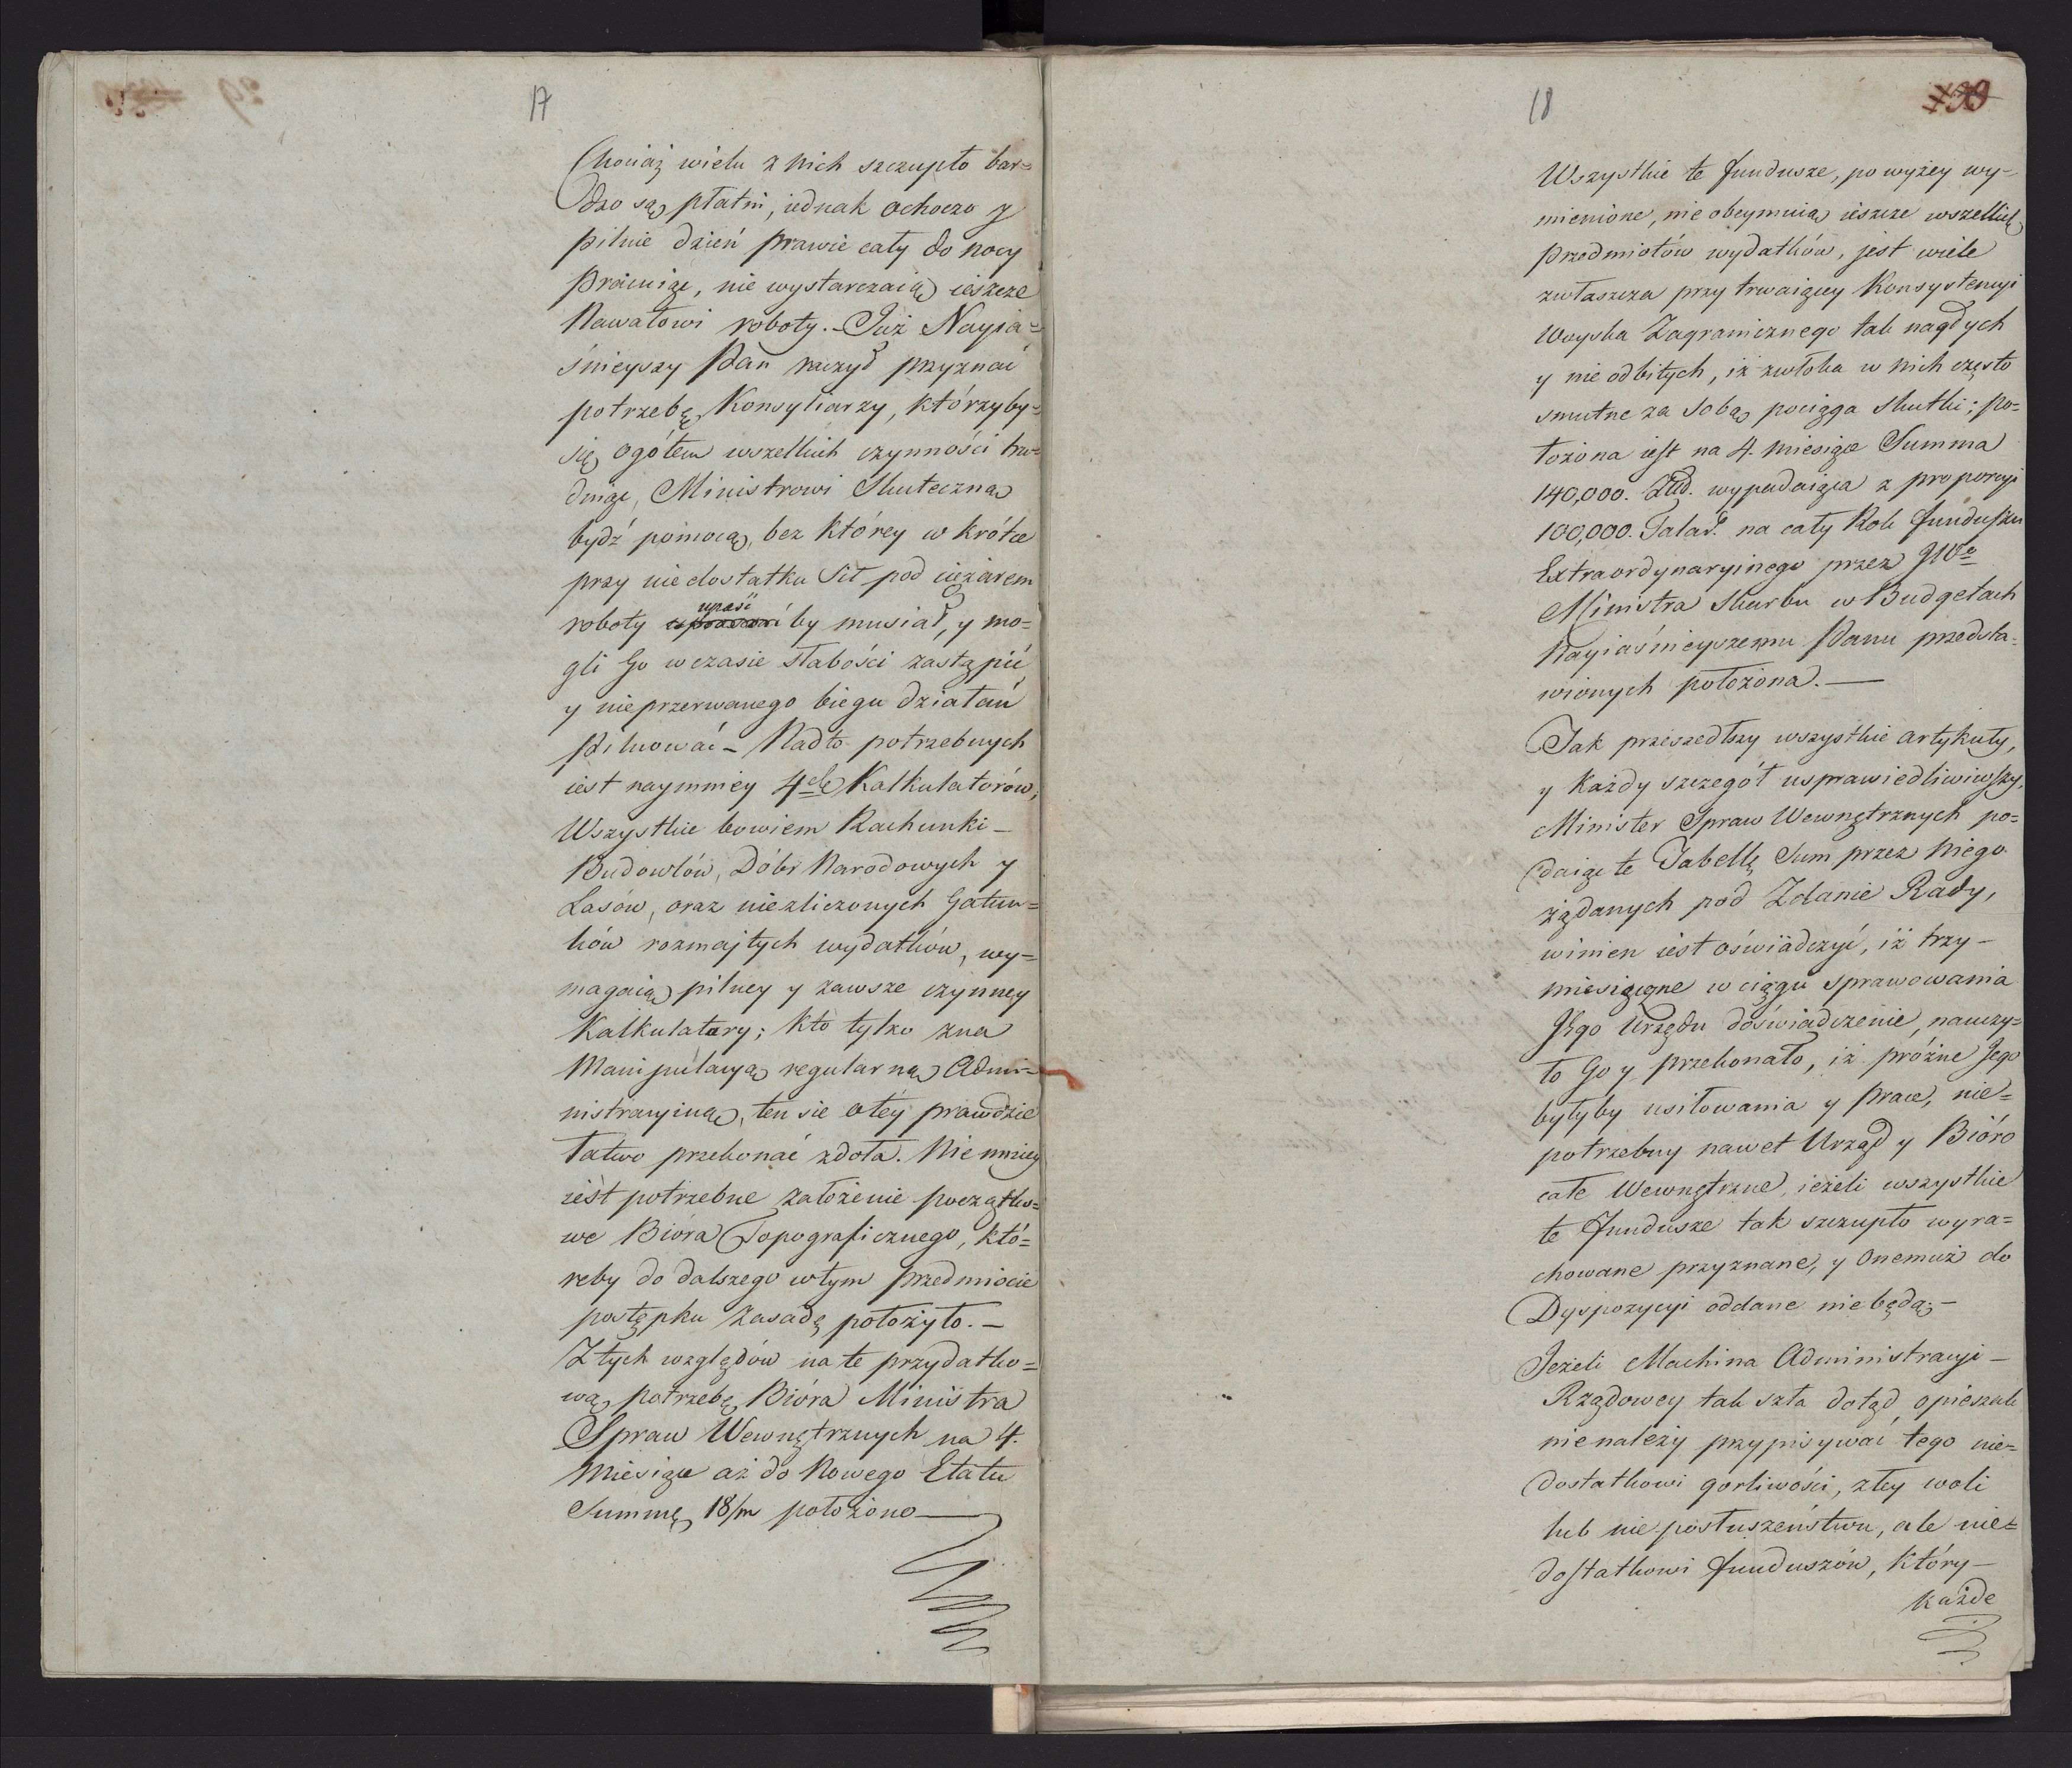 17
Chociaż wielu z nich szczupło bar=
dzo są płatni, iednak ochoczo y
pilnie dzień prawie cały do nocy
pracuiąc, nie wystarczaią ieszcze
Nawałowi roboty. Już Nayia=
śnieyszy Pan raczył przyznać
potrzebę Konsyliarzy, którzyby=
się ogółem wszelkich czynności tru=
dniąc, Ministrowi Skuteczną
bydź pomocą, bez którey w krótce
przy niedostatku Sił pod ciężarem
upaść
roboty by musiał, y mo=
gli Go w czasie słabości zastąpić
y nieprzerwanego biegu działań
pilnować – Nadto potrzebnych
iest naymniey 4ch Kalkulatorów,
Wszystkie bowiem Rachunki –
Budowlów, Dóbr Narodowych y
Lasów, oraz niezliczonych Gatun=
ków rozmajtych wydatków, wy=
magaią pilney y zawsze czynney
Kalkulatory; kto tylko zna
Manipulacyą regularną Admi=
nistracyiną, ten się o tey prawdzie
łatwo przekonać zdoła. Nie mniey
iest potrzebne założenie początko=
we Bióra Topograficznego, któ=
reby do dalszego w tym przedmiocie
postępku zasadę położyło. –
Z tych względów na te przydatko=
wą potrzebę Bióra Ministra
Spraw Wewnętrznych na 4.
Miesiące aż do Nowego Etatu
Summę 18/m położono
18
Wszystkie te fundusze, powyżey wy=
mienione, nie obeymuią ieszcze wszelkich
przedmiotów wydatków, jest wiele
zwłaszcza przy trwaiącey Konsystencyi
Woyska Zagranicznego tak nagłych
y nie odbitych, iż zwłoka w nich często
smutne za sobą pociąga skutki; po=
łożona iest na 4. miesiące Summa
140,000. wypadaiąca z proporcyi
100,000. Talar. na cały Rok funduszu
Extraordynaryinego przez JWo
Ministra Skarbu w Budgetach
Nayiaśnieyszemu Panu przedsta=
wionych położona. —
Tak przeszedłszy wszystkie artykuły,
y każdy szczegół usprawiedliwiwszy,
Minister Spraw Wewnętrznych po=
daiąc te Tabellę Sum przez niego
żądanych pod Zdanie Rady,
winien iest oświadczyć, iż trzy–
miesięczne w ciągu sprawowania
Jego Urzędu doświadczenie, nauczy=
ło Go y przekonało, iż próżne Jego
byłyby usiłowania y prace, nie=
potrzebny nawet Urząd y Bióro
całe Wewnętrzne, ieżeli wszystkie
te fundusze tak szczupło wyra=
chowane przyznane, y onemuż do
Dyspozycyi oddane nie będą; –
Jeżeli Machina Administracyi –
Rządowey tak szła dotąd opieszale
nie należy przypisywać tego nie=
dostatkowi gorliwości, złey woli
lub nie posłuszeństwu, ale nie=
dostatkowi funduszów, który –
każde